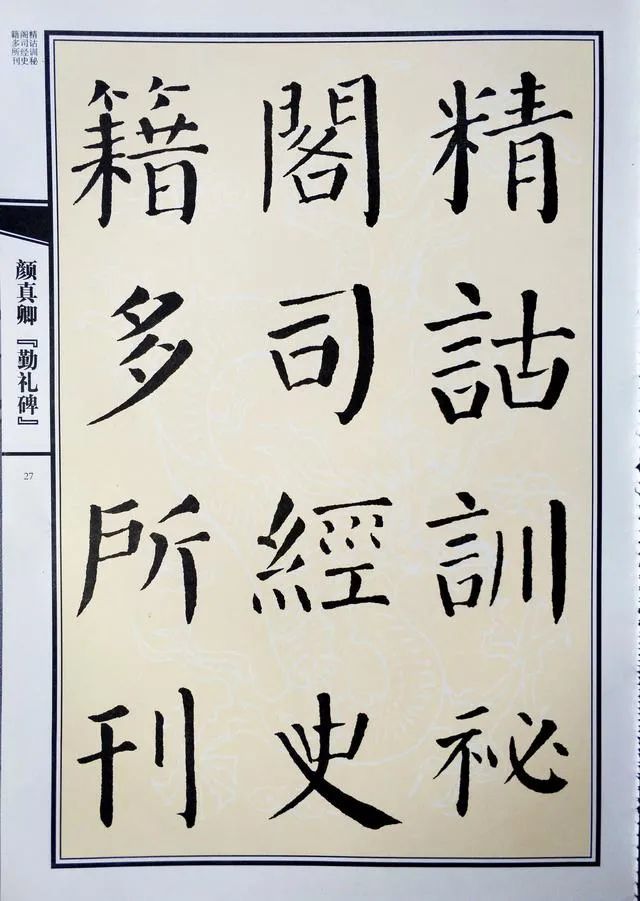 精詁訓祕
閣司經史
籍多所刊
精诂训秘
阁司经史
籍多所刊
颜真卿『勤礼碑』
27